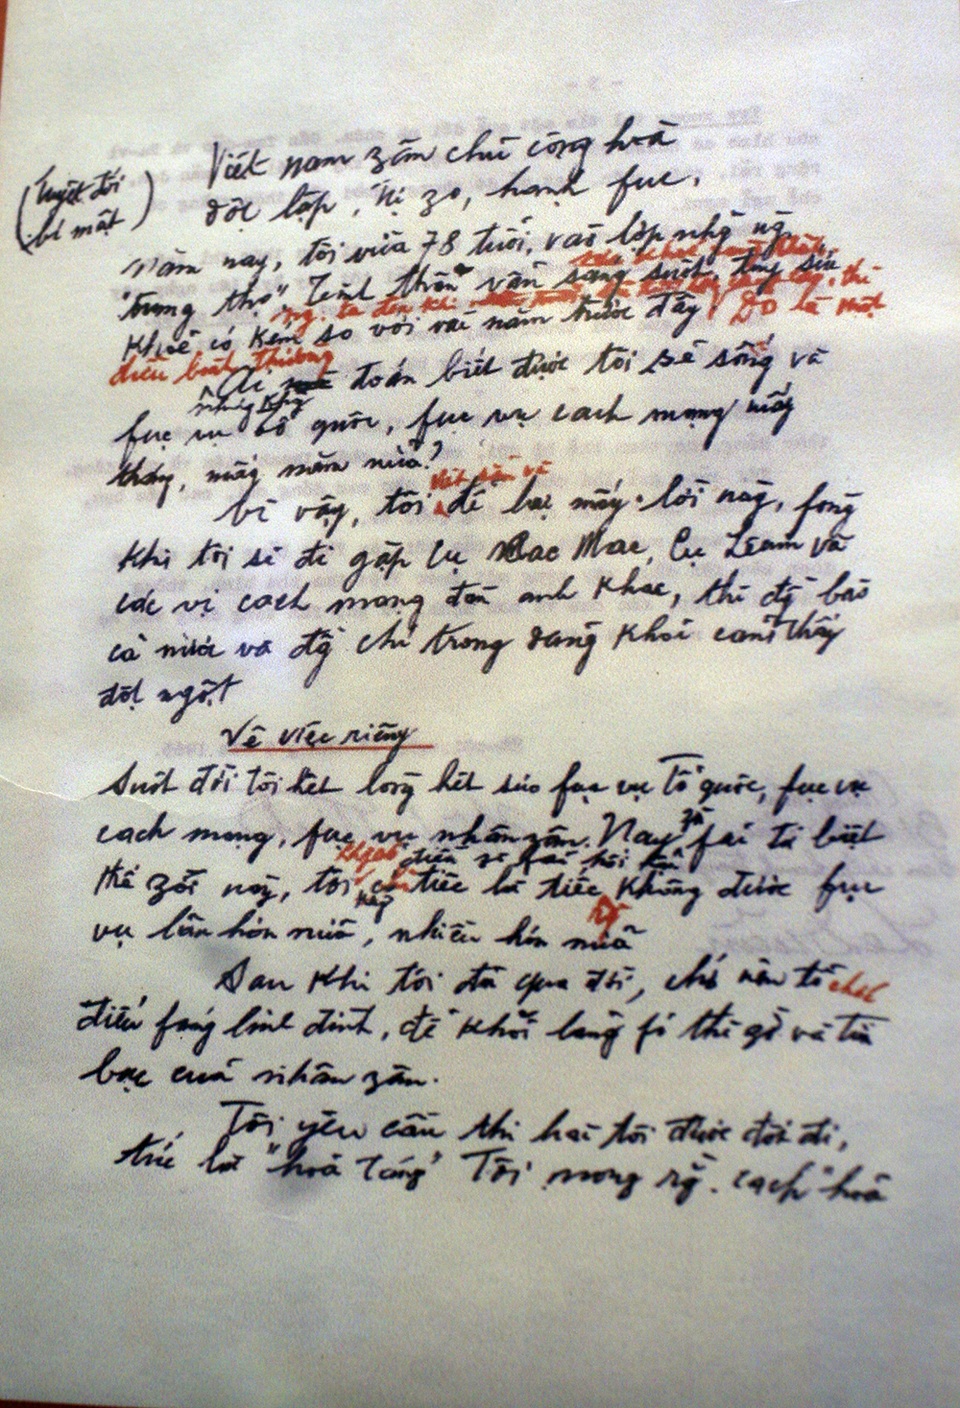 Việt nam zân chủ cộng hoà
độc lập, tự zo, hạnh fúc.
(Tuyệt đối
bí mật)
Năm nay, tôi vừa 78 tuổi, vào lớp nhg ng.
"trung thọ", Tinh thần vẫn sáng suốt, tuy sức
khoẻ có kém so với vài năm trước đây
ng. ta đến khi
thì
Đó là một
điều bình thường
Ai đoán biết được tôi sẽ sống và
fục vụ tổ quốc, fục vụ cách mạng mấy
tháng, mấy năm nữa?
viết sẵn và
Vì vậy, tôi để lại mấy lời này, fòng
khi tôi sẽ đi gặp Cụ Cac Mac, Cụ Lênin và
các vị cách mạng đàn anh khác, thì đg bào
cả nước và đg chí trong đang khỏi cảm thấy
đột ngột
Về việc riêng
Suốt đời tôi hết lòng hết sức fục vụ Tổ quốc, fục vụ
cách mạng, fục vụ nhân zân. Nay zù fải từ biệt
khgcó điều gì fải hối hận
thế zới này, tôi tiếc là tiếc không được fục
vụ lâu hơn nữa, nhiều hơn nữa
Sau khi tôi đã qua đời, chớ nên tổ chức
điếu fúng linh đình, để khỏi lãng fí thì giờ và tiền
bạc của nhân zân.
Tôi yêu cầu thi hài tôi được đốt đi,
tức là "hoả táng" Tôi mong rg. cách "hoả